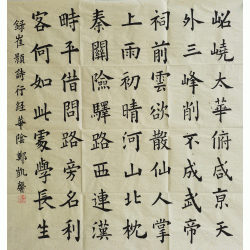 岧嶢太華俯咸京天
外三峰削不成武帝
祠前雲欲散仙人掌
上雨初晴河山北枕
秦關險驛路西連漢
時平借問路旁名利
客何如此處學長生
録崔顥詩行經華陰鄭凱